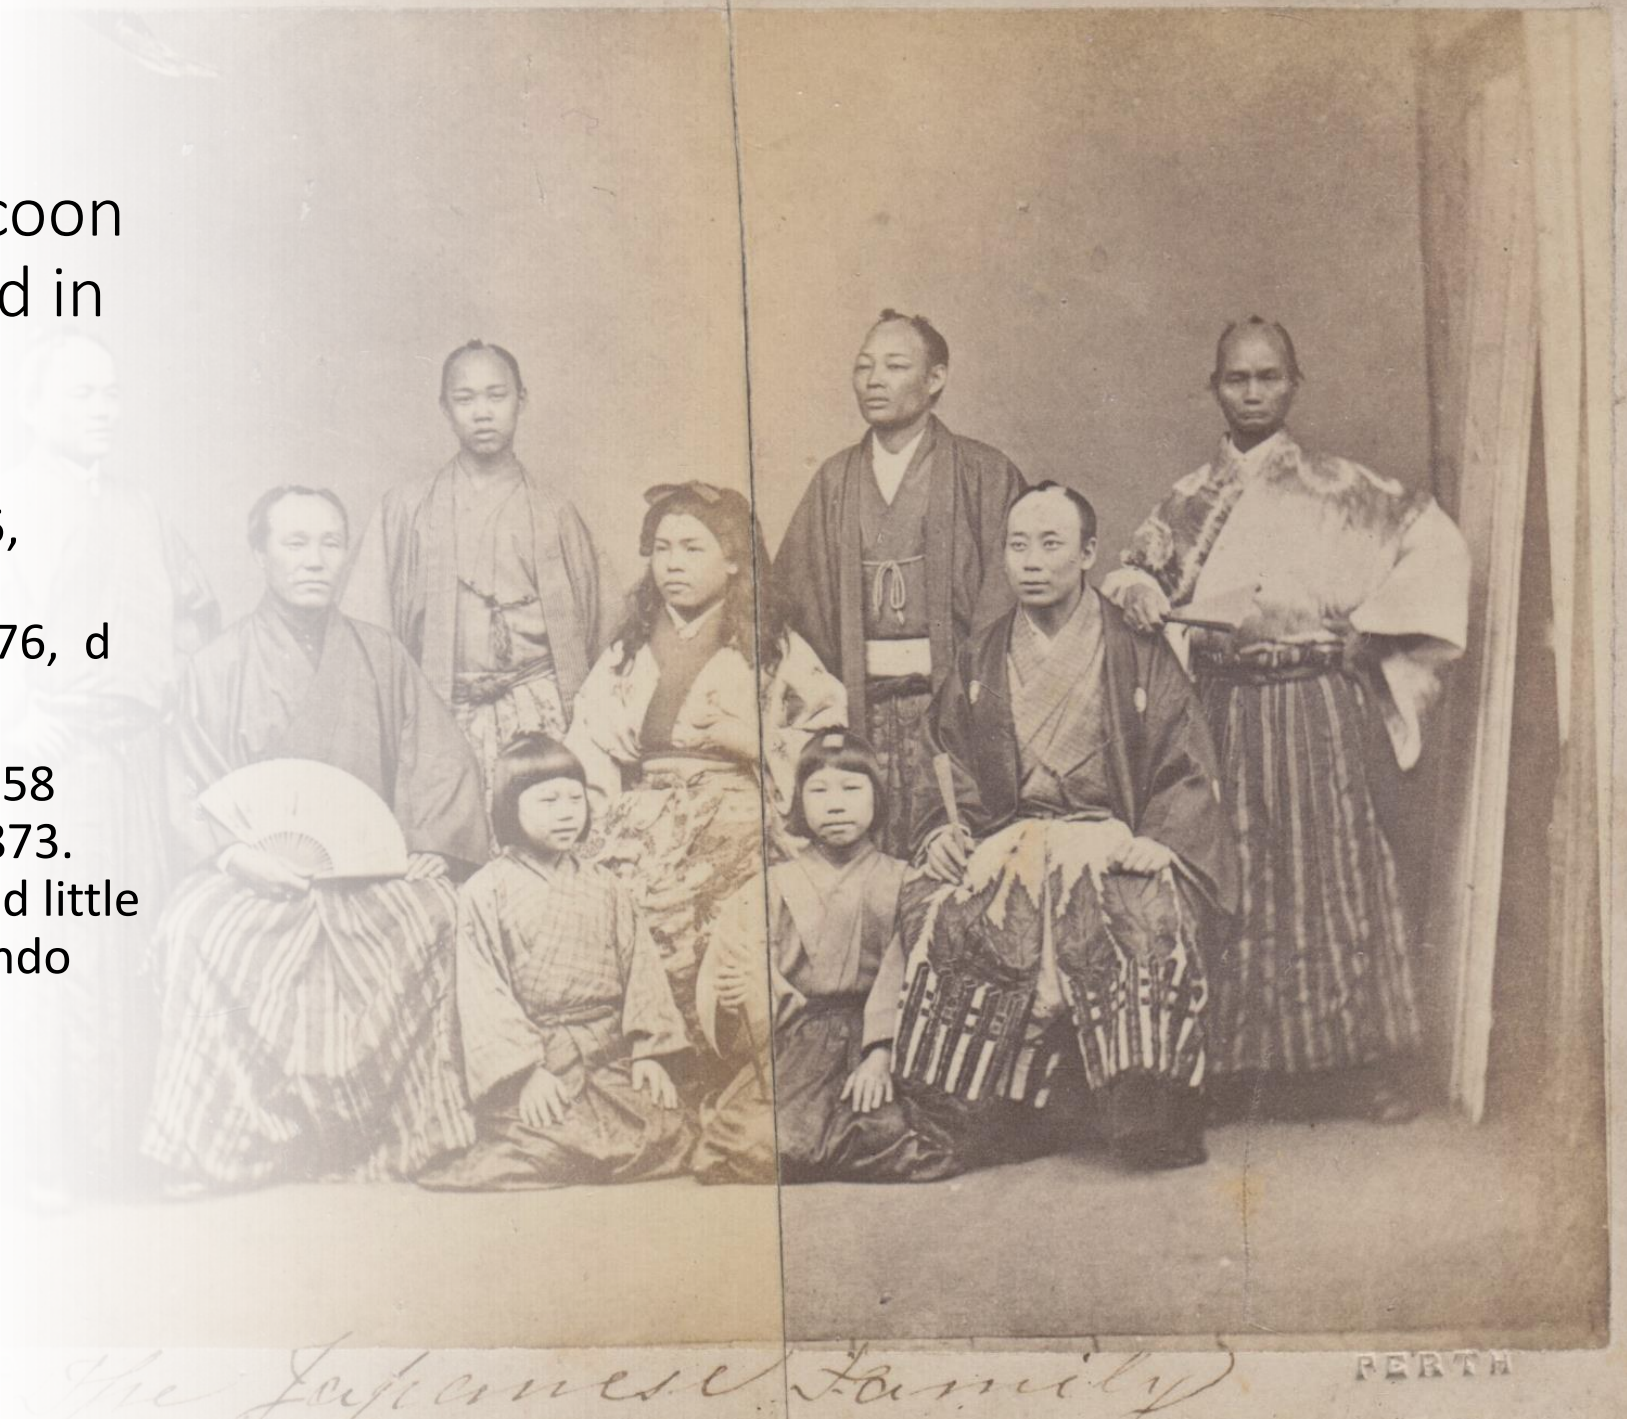 coon
d in
76, d
58
873.
d little
ndo
The Japanese Family
PERTH